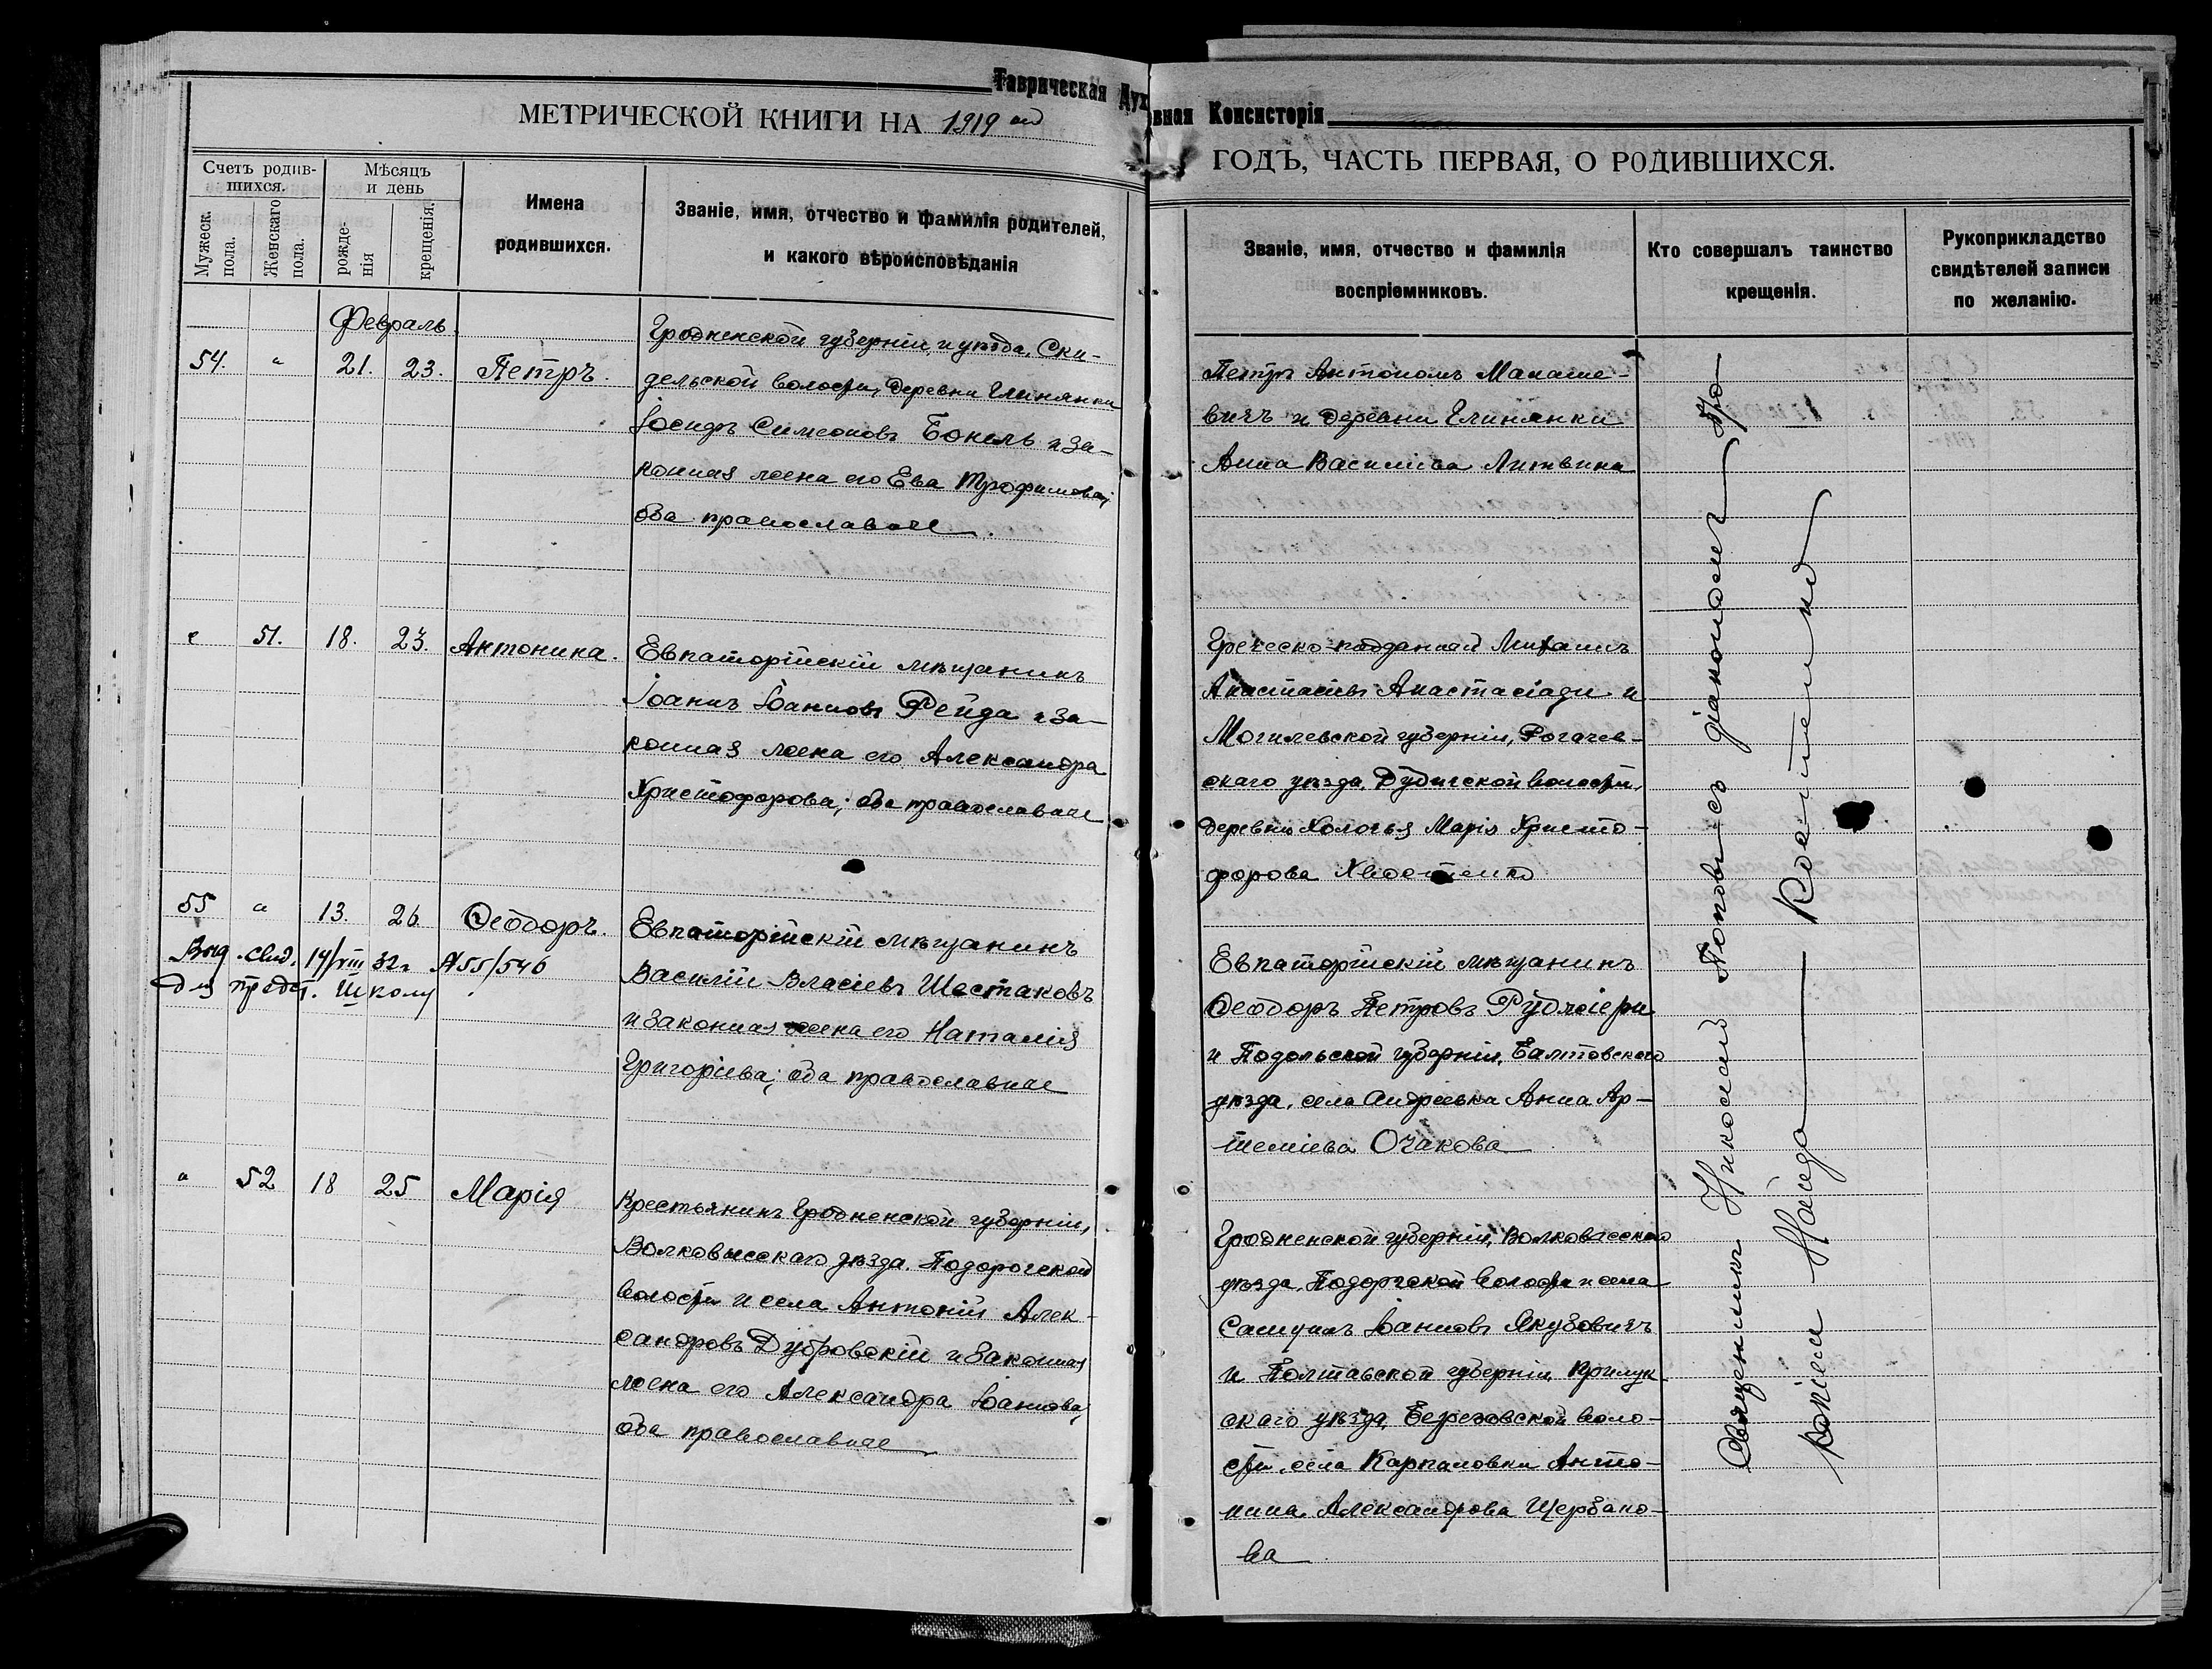 Таврическая Духовная Консисторія
МЕТРИЧЕСКОЙ КНИГИ НА 1919 ый
ГОДЪ, ЧАСТЬ ПЕРВАЯ, О РОДИВШИХСЯ.
Счетъ родив-
шихся.
Мужеск.
пола.
Женскаго
пола.
Мѣсяцъ
и день
рожде-
нія
крещенія.
Имена
родившихся.
Званіе, имя, отчество и фамилія родителей,
и какого вѣроисповѣданія
Званіе, имя, отчество и фамилія
воспріемниковъ.
Кто совершалъ таинство
крещенія.
Рукоприкладство
свидѣтелей записи
по желанію.
Февраль.
54. " 21. 23. Петръ.
Гродненской губерніи, и уѣзда, Ски-
дельской волости, деревни Глинянки
Іосифъ Симеоновъ Бокель и за-
конная жена его Ева Трофимова;
оба православные.
Петръ Антоновъ Макаше-
вичъ и деревни Глинянки
Анна Василіева Литвина
" 51. 18. 23. Антонина.
Евпаторійскій мѣщанинъ
Іоаннъ Іоанновъ Рейда и за-
конная жена его Александра
Христофорова; оба православные
Греческо-подданный Михаилъ
Анастасіевъ Анастасіади и
Могилевской губерніи, Рогачев-
скаго уѣзда, Дудичской волости,
деревни Холочья Марія Христо-
форова Хвостенко
55 " 13. 26 Ѳеодоръ.
Выд. свид. 14/VIII 32 г. №55/546
для предст. школу
Евпаторійскій мѣщанинъ
Василій Власіевъ Шестаковъ
и законная жена его Наталія
Григоріева; оба православные
Евпаторійскій мѣщанинъ
Ѳеодоръ Петровъ
и Подольской губерніи, Балтовскаго
уѣзда, села Андреевка Анна Ар-
теміева Очакова
" 52 18 25 Марія
Крестьянинъ Гродненской губерніи,
Волковысскаго уѣзда, Подороской
волости и села Антоній Алек-
сандровъ Дубровскій и законная
жена его Александра Іоаннова,
оба православные
Гродненской губерніи, Волковысскаго
уѣзда, Подороской волости и села
Самуилъ Іоанновъ Якубовичъ
и Полтавской губерніи Прилук-
скаго уѣзда, Березовской воло-
сти, села Карпиловки Анто-
нина Александрова Щербако-
ва
Священникъ Николай Поповъ съ діакономъ Про-
копіем Найда Костенко